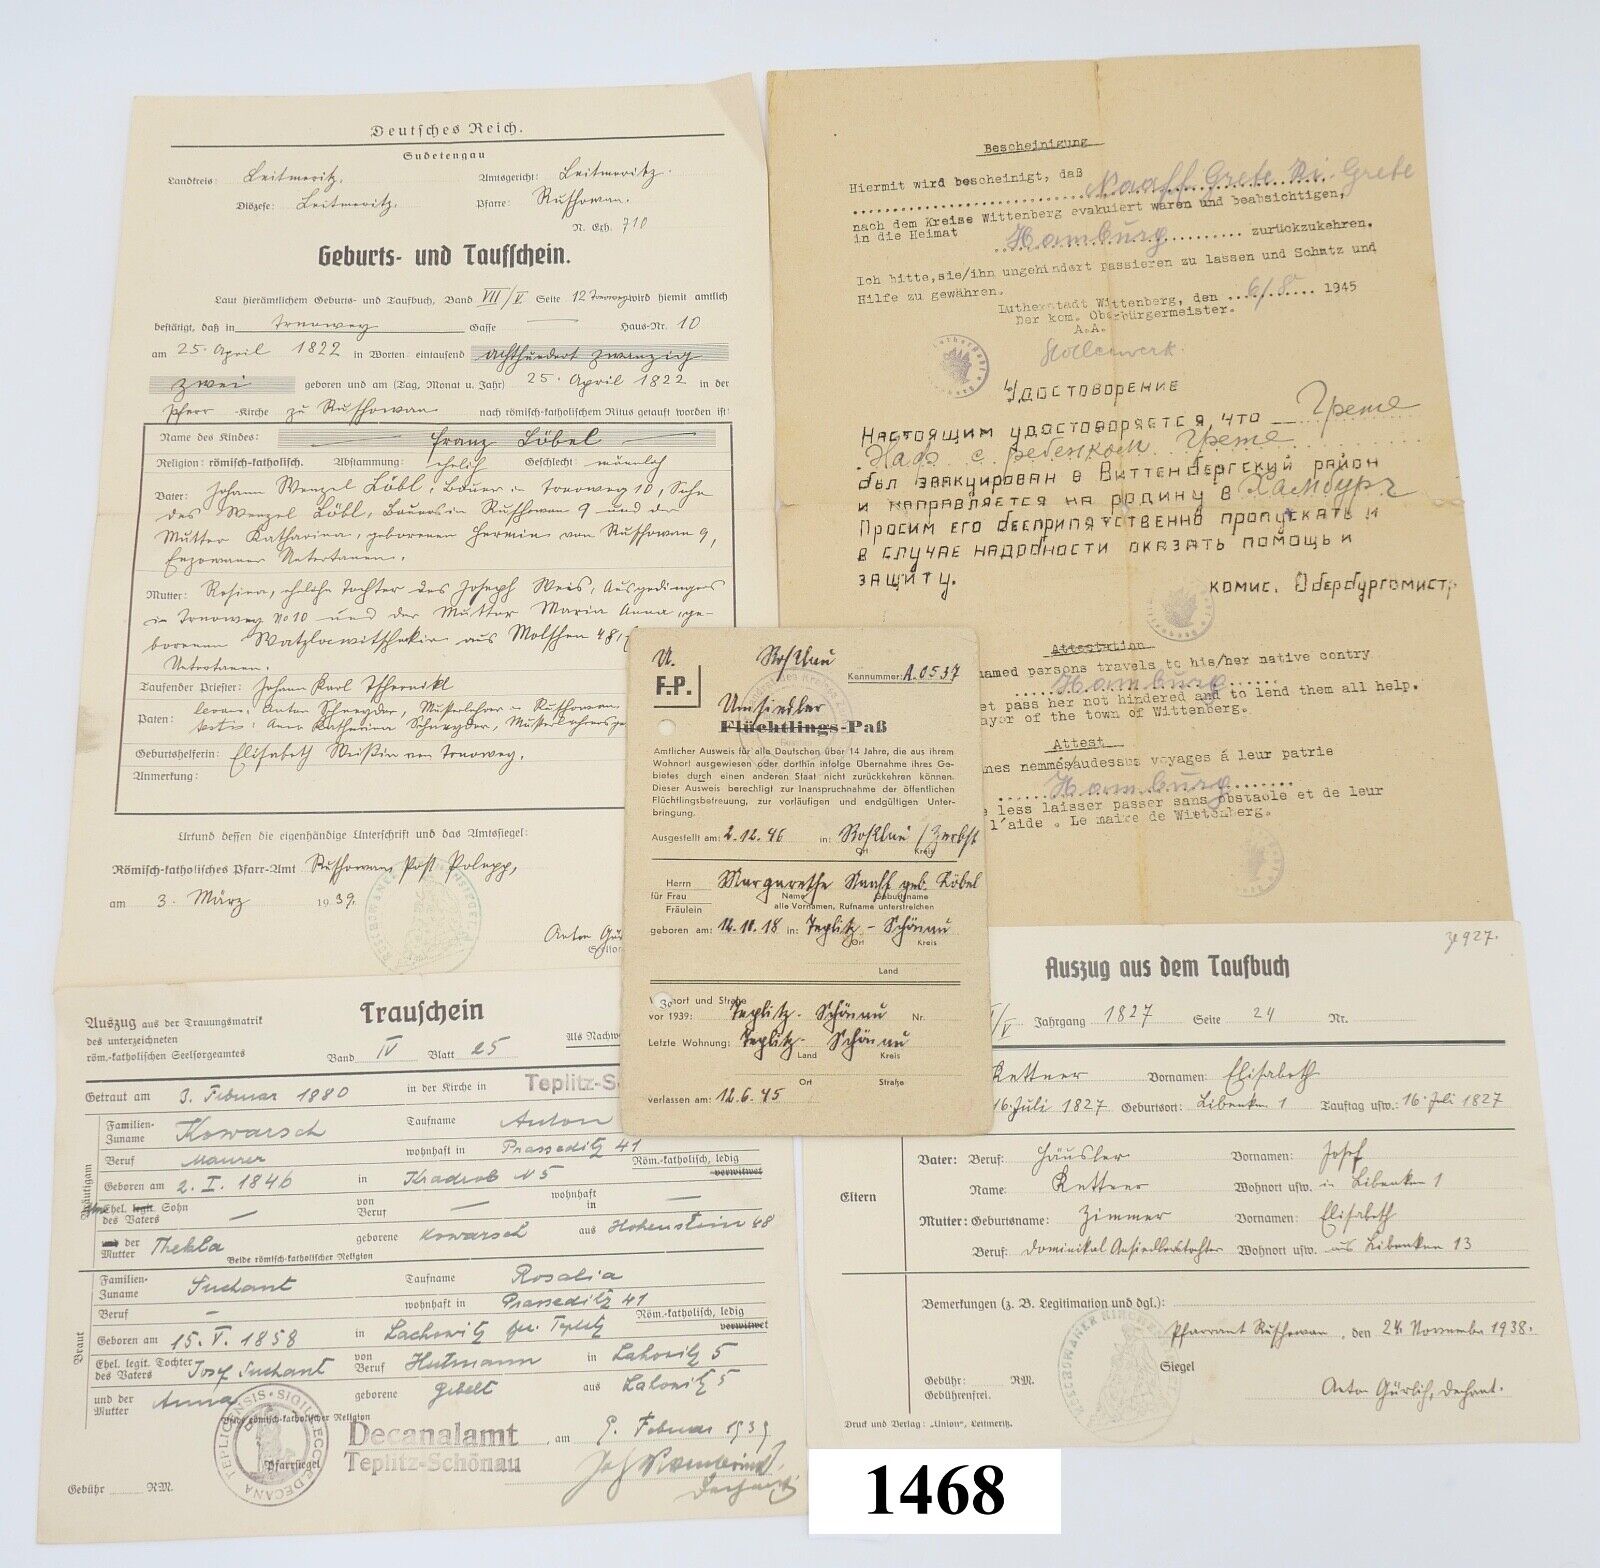 Deutsches Reich.
Sudetengau
Landkreis: Leitmeritz. Amtsgericht: Leitmeritz.
Diözese: Leitmeritz. Pfarre: Ruschowan.
N. Exh. 710
Geburts- und Taufschein.
Laut hierämtlichem Geburts- und Taufbuch, Band VII/V Seite 12 wird hiemit amtlich
bestätigt, daß in Trnowey Gasse — Haus-Nr. 10
am 25. April 1822 in Worten: eintausend achthundert zwanzig
zwei geboren und am (Tag, Monat u. Jahr) 25. April 1822 in der
Pfarr -Kirche zu Ruschowan nach römisch-katholischem Ritus getauft worden ist:
Name des Kindes: Franz Löbel
Religion: römisch-katholisch. Abstammung: ehelich Geschlecht: männlich
Vater: Johann Wenzel Löbl, Bauer in Trnowey 10, Sohn
des Wenzel Löbl, Bauers in Ruschowan 9 und der
Mutter Katharina, geborenen Hermin von Ruschowan 9,
Untertanen.
Mutter: Rosina, eheliche Tochter des Joseph Weis, Ausgedingers
in Trnowey No 10 und der Mutter Maria Anna, ge-
borenen aus Molschen 48,
Untertanen.
Taufender Priester: Johann Karl
Paten: Anton Schneyder, Musterlehrer in Ruschowan
Anna Katharina Schneyder,
Geburtshelferin: Elisabeth von Trnowey.
Anmerkung:
Urkund dessen die eigenhändige Unterschrift und das Amtssiegel:
Römisch-katholisches Pfarr-Amt Ruschowan, Post Polepp,
am 3. März 1939.
Anton Gür
Bescheinigung
Hiermit wird bescheinigt, daß
Naaff Grete Ki. Grete
nach dem Kreise Wittenberg evakuiert waren und beabsichtigen,
in die Heimat Hamburg zurückzukehren.
Ich bitte, sie/ihn ungehindert passieren zu lassen und Schutz und
Hilfe zu gewähren.
Lutherstadt Wittenberg, den 6/8 1945
Der kom. Oberbürgermeister.
A.A.
Удостоворение
Настоящим удостоворяется, что Грете
Наф с ребенком Грете
был эвакуирован в Виттенбергский район
и направляется на родину в Хамбург
Просим его бесприпятственно пропускать и
в случае надобности оказать помощь и
защиту.
комис. Обербургомистр
Attestation
named persons travels to his/her native contry
Hamburg
et pass her not hindered and to lend them all help.
ayor of the town of Wittenberg.
Attest
nes nemmésaudessus voyages á leur patrie
Hamburg
e less laisser passer sans obstacle et de leur
l'aide . Le maire de Wittenberg.
U. Roßlau
F.P. Kennummer: A.0537
Umsiedler
Flüchtlings-Paß
Amtlicher Ausweis für alle Deutschen über 14 Jahre, die aus ihrem
Wohnort ausgewiesen oder dorthin infolge Übernahme ihres Ge-
bietes durch einen anderen Staat nicht zurückkehren können.
Dieser Ausweis berechtigt zur Inanspruchnahme der öffentlichen
Flüchtlingsbetreuung, zur vorläufigen und endgültigen Unter-
bringung.
Ausgestellt am: 2.12.46 in: Roßlau / Zerbst
Ort Kreis
Herrn
für Frau Margarethe Naaff geb. Löbel
Fräulein
Name Geburtsname
alle Vornamen, Rufname unterstreichen
geboren am: 12.10.18 in: Teplitz-Schönau
Ort Kreis
Land
Wohnort und Straße
vor 1939: Teplitz-Schönau Nr.
Letzte Wohnung: Teplitz-Schönau
Land Kreis
Ort Straße
verlassen am: 12.6.45
Trauschein
Auszug aus der Trauungsmatrik
des unterzeichneten
röm.-katholischen Seelsorgeamtes
Als Nachw
Band IV Blatt 25
Getraut am 3. Februar 1880 in der Kirche in Teplitz-S
Bräutigam
Familien-
Zuname Kowarsch Taufname Anton
Beruf Maurer wohnhaft in Prasseditz 41
Röm.-katholisch, ledig
verwitwet
Geboren am 2. I. 1846 in Kradrob N 5
Ehel. legit. Sohn
des Vaters — von Beruf — wohnhaft in —
und der
Mutter Thekla geborene Kowarsch aus Hohenstein 48
Beide römisch-katholischer Religion
Braut
Familien-
Zuname Suchant Taufname Rosalia
Beruf — wohnhaft in Prasseditz 41
Röm.-katholisch, ledig
verwitwet
Geboren am 15. V. 1858 in Lachowitz Bez. Teplitz
Ehel. legit. Tochter
des Vaters Josef Suchant von Beruf Hutmann in Lahowitz 5
und der
Mutter Anna geborene aus Lahowitz 5
Beide römisch-katholischer Religion
Decanalamt
Teplitz-Schönau
, am 9. Februar 1939
Pfarrsiegel
Gebühr RM.
Dechant
Auszug aus dem Taufbuch
/V Jahrgang 1827 Seite 24 Nr.
Kettner Vornamen: Elisabeth
16. Juli 1827 Geburtsort: Libenken 1 Tauftag usw.: 16. Juli 1827
Eltern
Vater: Beruf: Häusler Vornamen: Josef
Name: Kettner Wohnort usw. in Libenken 1
Mutter: Geburtsname: Zimmer Vornamen: Elisabeth
Beruf: Dominikal Ansiedlerstochter Wohnort usw. aus Libenken 13
Bemerkungen (z. B. Legitimation und dgl.):
Pfarramt Ruschowan, den 24. November 1938.
Siegel
Gebühr: RM.
Gebührenfrei.
Anton Gürlich, Dechant.
Druck und Verlag: „Union", Leitmeritz.
1468